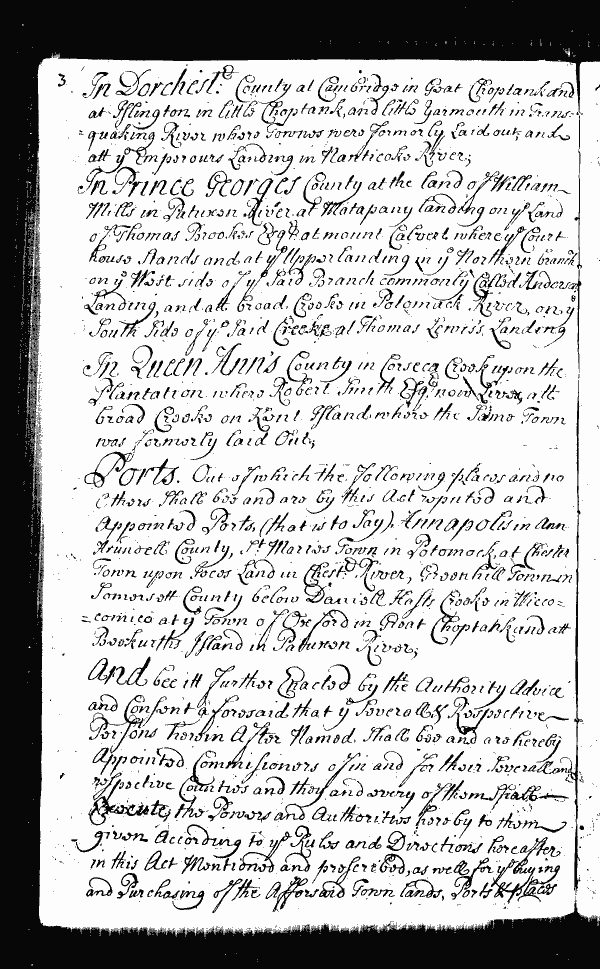 3. In Dorchestr County at Cambridge in Great Choptank and
at Islington in little Choptank, and little Yarmouth in Trans=
=quaking River where Townes were formerly Laid out; and
att ye Emperours Landing in Nanticoke River;
In Prince Georges County at the land of William
Mills in Patuxen River, at Matapany landing on ye Land
of Thomas Brookes Esqr at mount Calvert where ye Court
house Stands and at ye Upper landing in ye Northern branch
on ye West side of ye Said Branch commonly Called Anderson's
Landing, and att broad Creeke in Potomack River, on ye
South Side of ye Said Creeke at Thomas Lewis's Landing
In Queen Ann's County in Corseca Creek upon the
Plantation where Robert Smith Esqr now Lives, att
broad Creeke on Kent Island where the Same Town
was formerly laid Out;
Ports. Out of which the following places and no
Others Shall bee and are by this Act reputed and
Appointed Ports, (that is to Say) Annapolis in Ann
Arundell County, St Maries Town in Potomack, at Chester
Town upon Joces Land in Chestr River, Greenhill Town in
Somersett County below Daniell Hasts Creeke in Wicco=
=comico at ye Town of Oxeford in Great Choptank and att
Beckurths Island in Patuxen River;
And bee itt further Enacted by the Authority Advice
and Consent aforesaid that ye Severall & Respective
Persons herein After Named Shall bee and are hereby
Appointed Commissioners of in and for their Severall and
respective Counties and they and every of them Shall
Execute the Powers and Authorities hereby to them
given According to ye Rules and Directions hereafter
in this Act Mentioned and prescrebed, as well for ye buying
and Purchasing of the Afforsaid Town lands, Ports & places